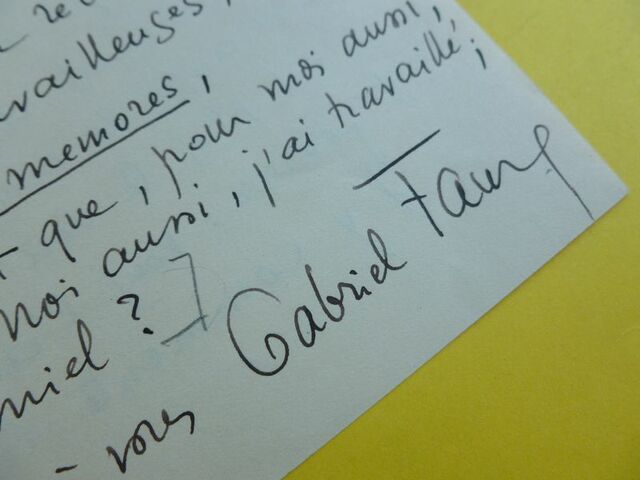 vailleuses,
memores,
que, pour moi aussi,
moi aussi, j'ai travaillé,
miel ?
- vous Gabriel Faure